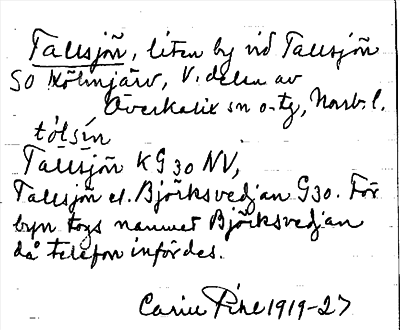 Tallsjön, liten by vid Tallsjön
SO Kölmjärv, V. delen av
Överkalix sn o. tg, Norrb. l.
tólsı̄n
Tallsjön KG 30 NV,
Tallsjön el. Björksvedjan G30. För
byn togs namnet Björksvedjan
då telefon infördes.
Carin Pihl 1919-27